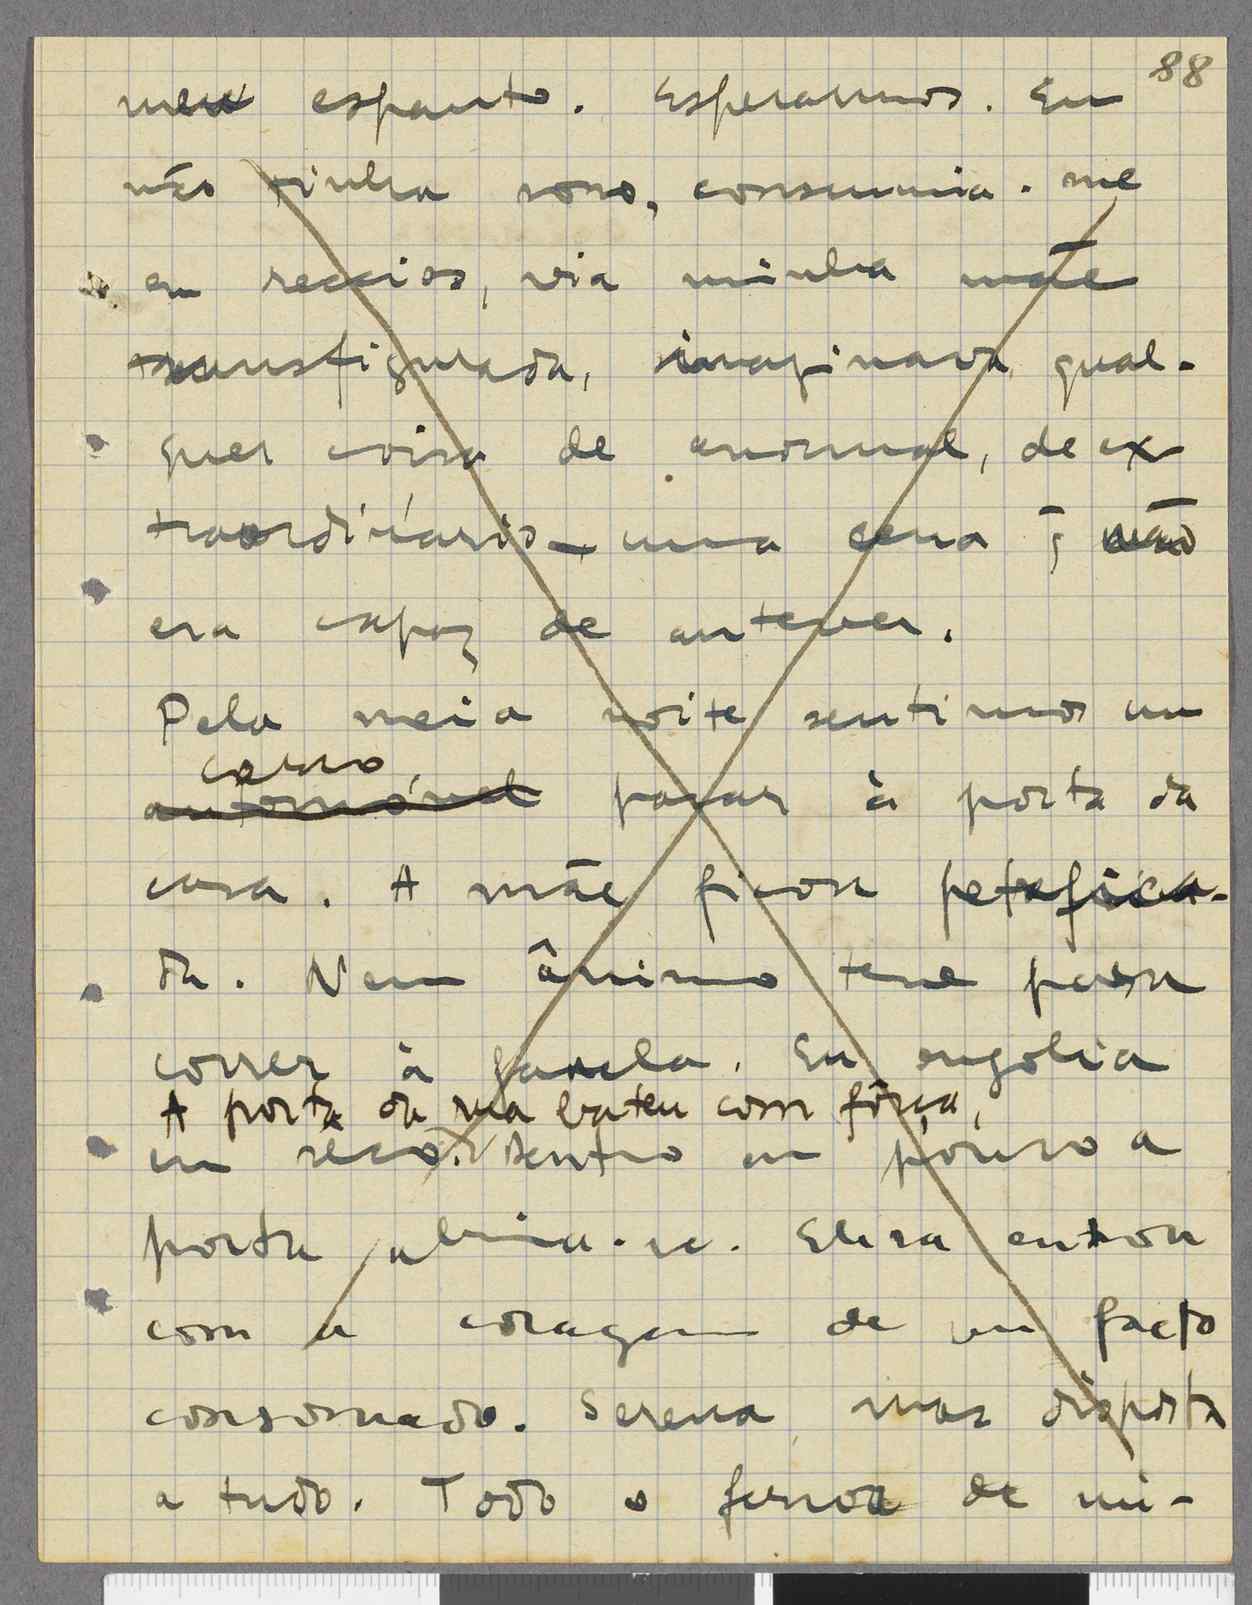 88
meu espanto. Esperámos. Eu
não tinha sono, consumia-me
em receios, via minha mãe
transfigurada, imaginava qual-
quer coisa de anormal, de ex
traordinário — uma cena q̃ não
era capaz de antever.
Pela meia noite sentimos um
carro
automóvel parar à porta da
casa. A mãe ficou petrifica-
da. Nem ânimo teve para
correr à janela. Eu engolia
A porta da rua bateu com fôrça,
em sêco. Dentro em pouco a
porta abria-se. Elisa entrou
com a coragem de um facto
consomado. Serena, mas disposta
a tudo. Todo o fervor de mi-